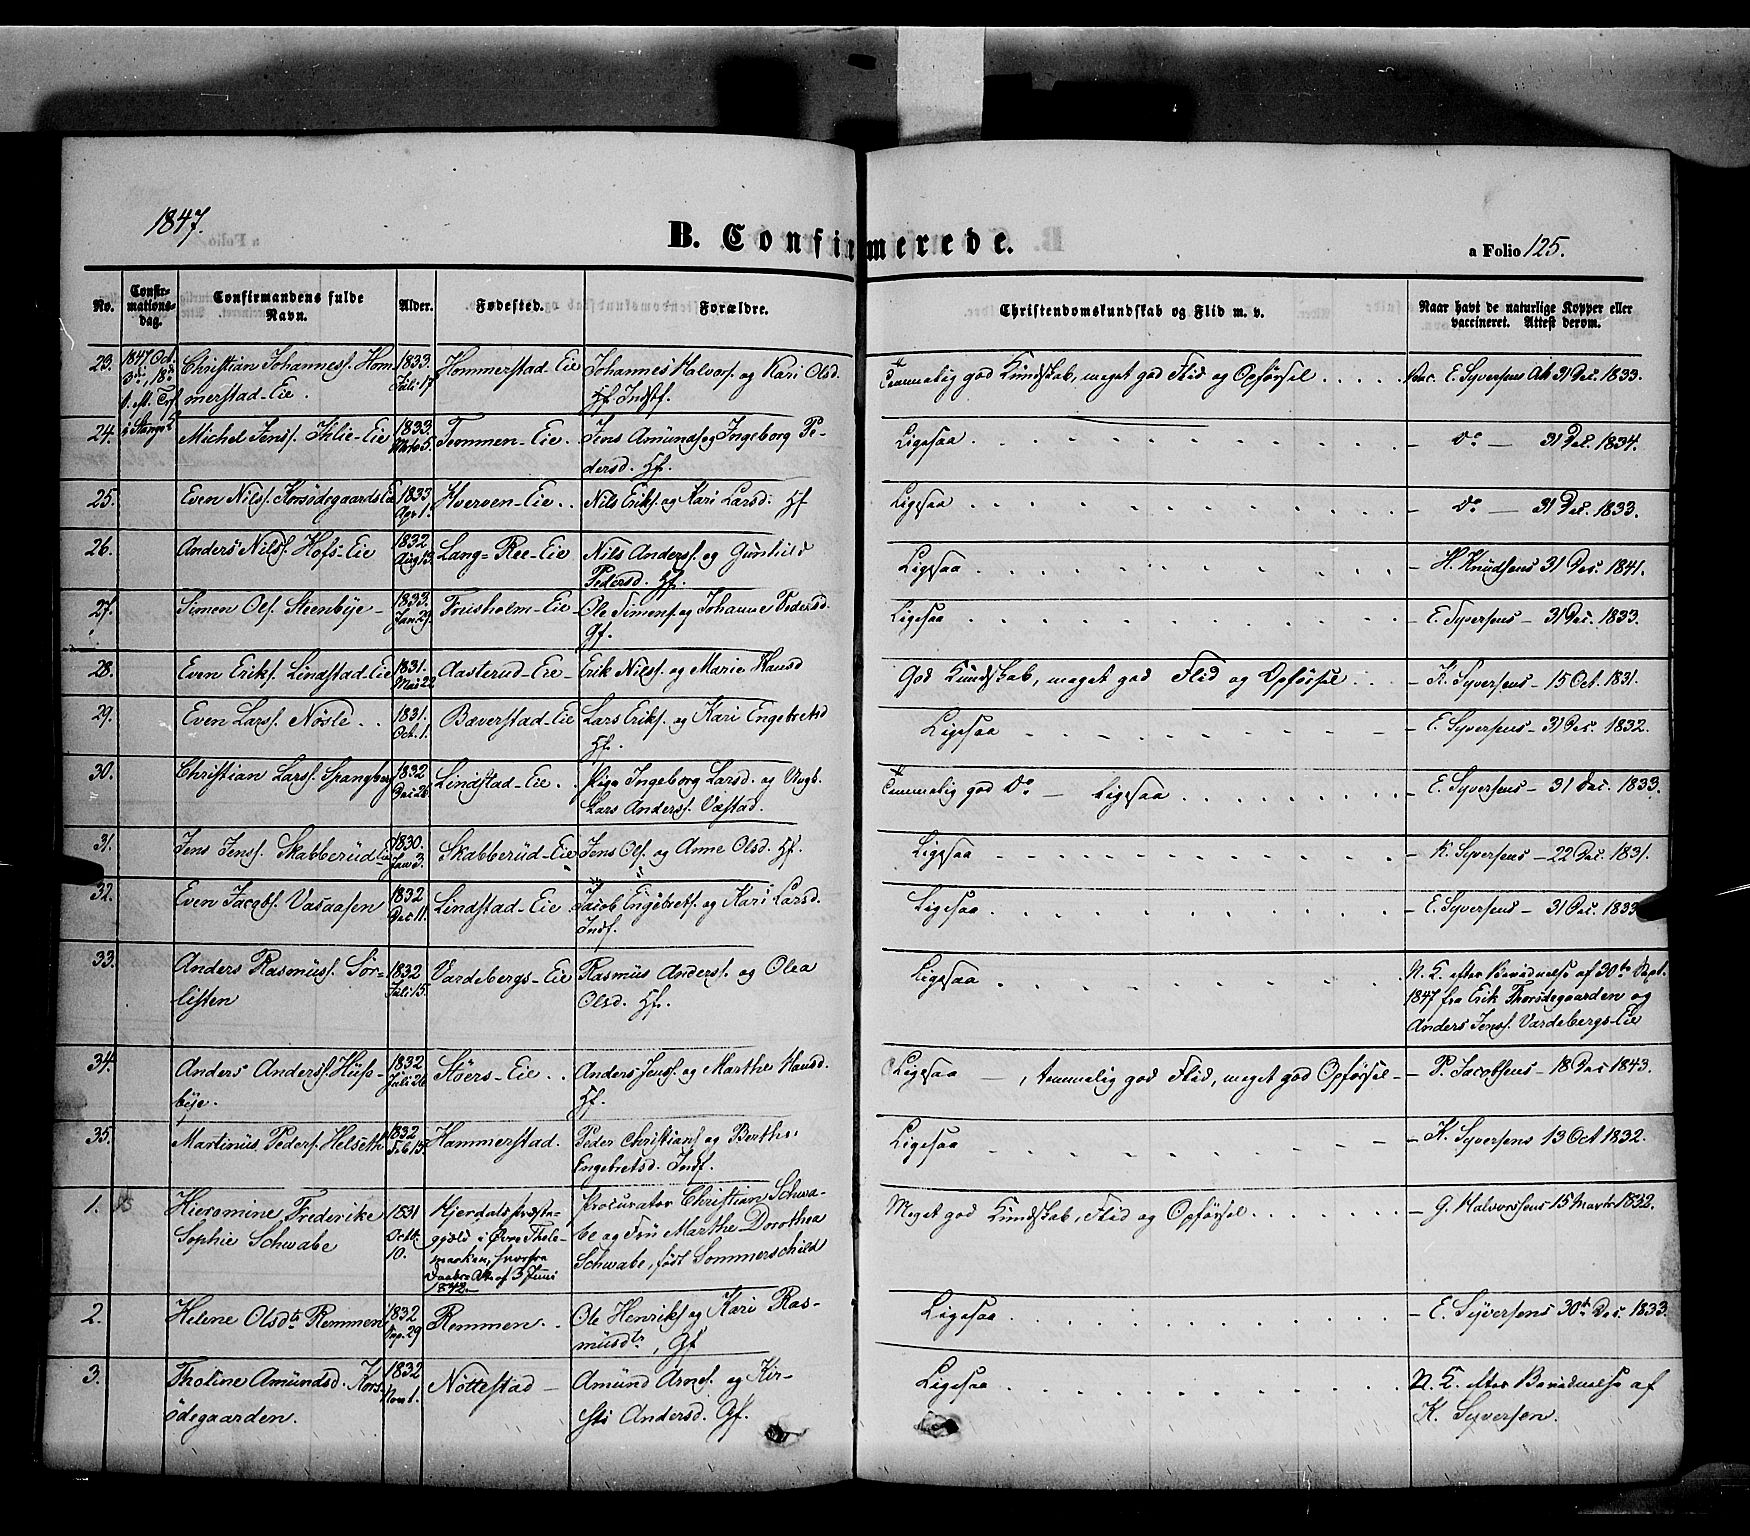 1847.
B. Confirmerede.
a Folio 125.
No. Confirmationsdag. Confirmandens fulde Navn. Alder. Fødested. Forældre. Christendomskundskab og Flid m. v. Naar havt de naturlige Kopper eller vaccineret. Attest derom.
23. 1847 Oct. 3die, 18de S. eft. Trf. i Stange Christian Johannesf. Hommerstad-Eie. 1833. Juli 17 Hommerstad-Eie Johannes Halvorf. og Kari Olsd. Hf. Indf. Temmelig god Kundskab, meget god Flid og Opførsel Vac. E. Syversens Att. 31 Dec. 1833.
24. Michel Jensf. Ihlie-Eie 1833. Mrts 5. Tommen-Eie. Jens Amundf. og Ingeborg Pedersd. Hf. Ligesaa. - Do - 31 Dec. 1834.
25. Even Nilsf. Korsødegaards Eie 1833 Apr. 1. Hverven-Eie. Nils Eriksf. og Kari Larsd. Hf Ligesaa - Do - 31 Dec. 1833.
26. Anders Nilsf. Hofs-Eie 1832 Aug 13. Lang-Ree-Eie Nils Andersf. og Gunhild Pedersd. Hf. Ligesaa - H. Knudsens 31 Dec. 1841.
27. Simen Olsf. Steenbye - 1833. Jan. 29. Frisholm-Eie - Ole Simensf. og Johanne Pedersd. Gf. Ligesaa - E. Syversens - 31 Dec. 1833.
28. Even Eriksf. Lindstad-Eie 1831. Mai 22 Aasterud-Eie - Erik Nilsf. og Marie Hansd God Kundskab, meget god Flid og Opførsel - K. Syversens - 15 Oct. 1831.
29. Even Larsf. Nøsle. 1831. Oct. 1. Bæverstad-Eie Lars Eriksf. og Kari Engebretsd Hf. Ligesaa - E. Syversens - 31 Dec. 1832.
30. Christian Larsf. Spangberg 1832 Dec 26. Lindstad-Eie. Pige Ingeborg Larsd. og Ungk. Lars Andersf. Vestad. Temmelig god Do - Ligesaa - E. Syversens - 31 Dec. 1833.
31. Jens Jensf. Skabberud Eie 1830. Jan 3. Skabberud-Eie Jens Olsf. og Anne Olsd. Hf. Ligesaa - K. Syversens - 22 Dec. 1831.
32. Even Jacobf. Vasaasen 1832 Dec 11. Lindstad-Eie Jacob Engebretsf. og Kari Larsd. Indf. Ligesaa - E. Syversens - 31 Dec. 1833
33. Anders Rasmusf. Sørlisten 1832 Juli 15. Vardebergs-Eie Rasmus Andersf. og Olea Olsd. Hf. Ligesaa N. K. efter Bevidnelse af 30te Sept. 1847 fra Erik Thorsdegaarden og Anders Jensf. Vardebergs-Eie
34. Anders Andersf. Husebye. 1832 Juli 26 Støers-Eie. Anders Jensf. og Marthe Hansd. Hf. Ligesaa - , temmelig god Flid, meget god Opførsel - - P. Jacobsens - 18 Dec 1843.
35. Martinus Pedersf. Helseth 1832 Feb 15. Hammerstad. Peder Christiansf. og Berthe Engebretsd. Indf. Ligesaa - K. Syversens 13 Oct 1832.
1. Hieromine Frederike Sophie Schwabe 1831 Octb. 10. Hjerdals Præstegjeld i Øvre Thelemarken, hvorfra Daabs Att. af 3 Juni 1842. Procurator Christian Schwabe og Fru Marthe Dorothea Schwabe, født Sommerschild Meget god Kundskab, Flid og Opførsel. - G. Halvorsens 15 Marts 1832.
2. Helene Olsdtr Remmen 1832 Sep. 29 Remmen. Ole Henriksf. og Kari Rasmusdtr, Gf Ligesaa. - E. Syversens 30te Dec. 1833.
3. Tholine Amundsd. Korsødegaarden. 1832 Nov 1. Nøttestad - Amund Arnesf. og Kirsti Andersd. Gf. Ligesaa N. K. efter Bevidnelse af K. Syversen.